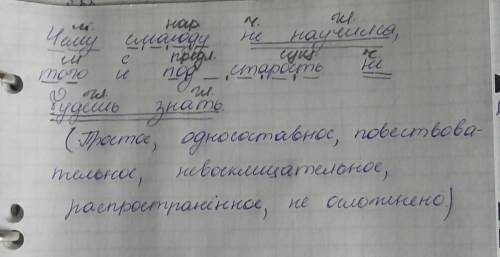 м. нар. ч. гл.
Чему смолоду не научился,
м с предл. сущ. ч.
того и под старость не
гл. гл.
будешь знать.
(Простое, односоставное, повествова-
тельное, невосклицательное,
распространённое, не осложнено.)